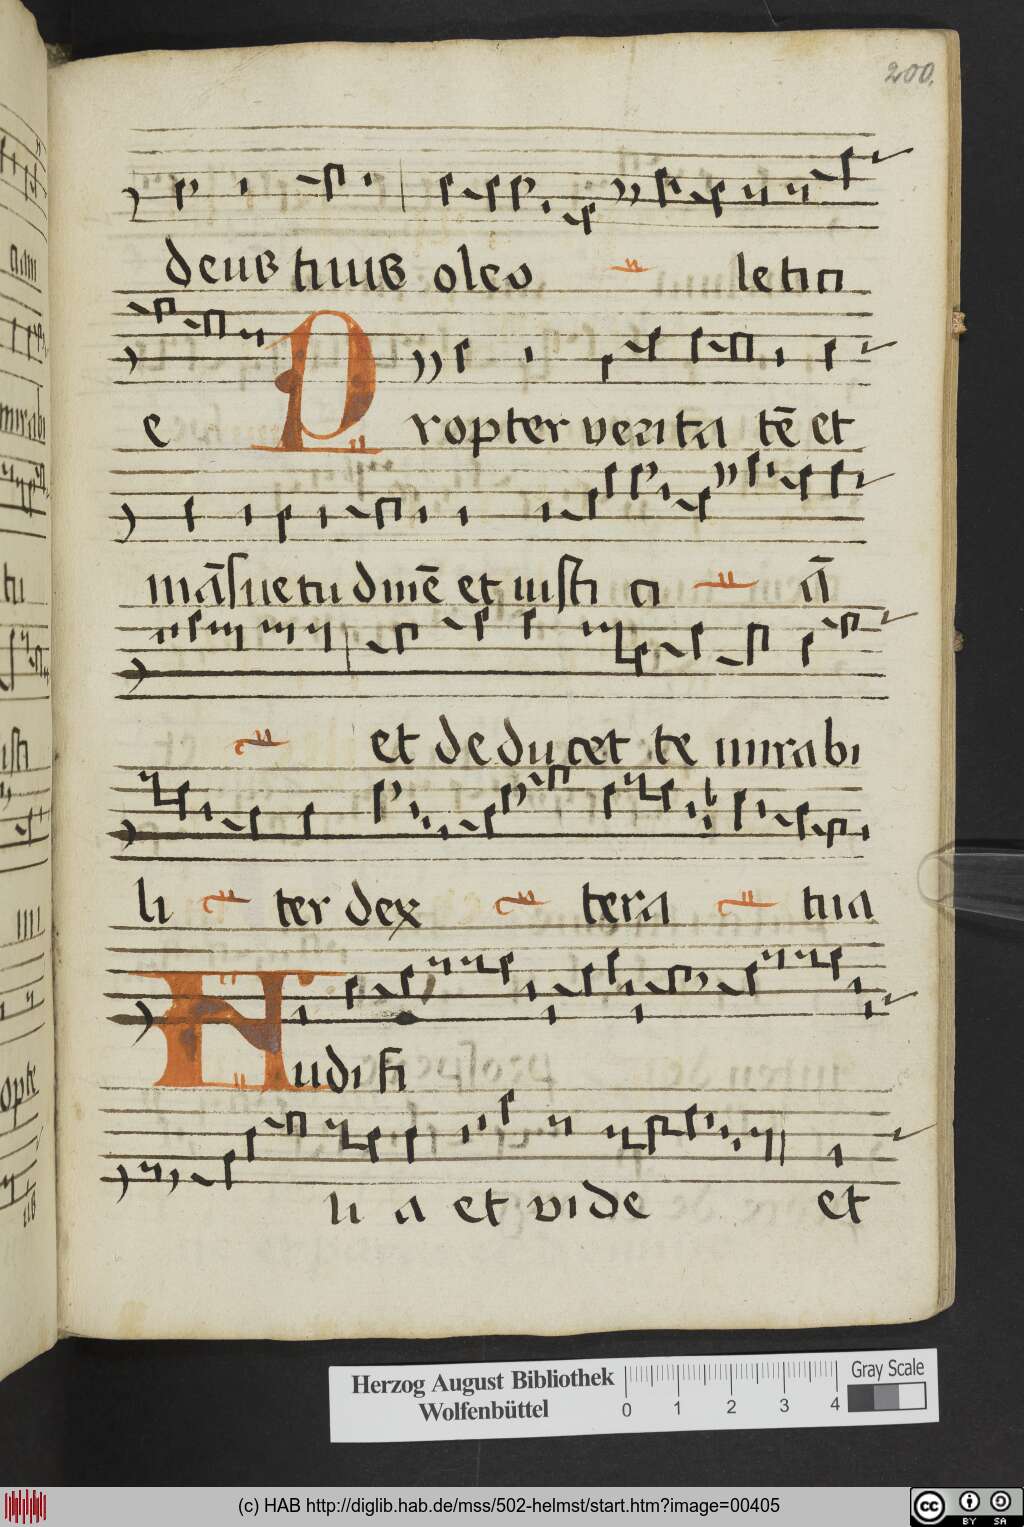 200.
deus tuus oleo leticı
e Propter veritatē et
māsuetudinē et iusti ci ā
et deducet te mirabi
li ter dex tera tua
Audi fi
li a et vide et
Herzog August Bibliothek
Wolfenbüttel
0 1 2 3 4
Gray Scale
(c) HAB http://diglib.hab.de/mss/502-helmst/start.htm?image=00405
cc BY SA